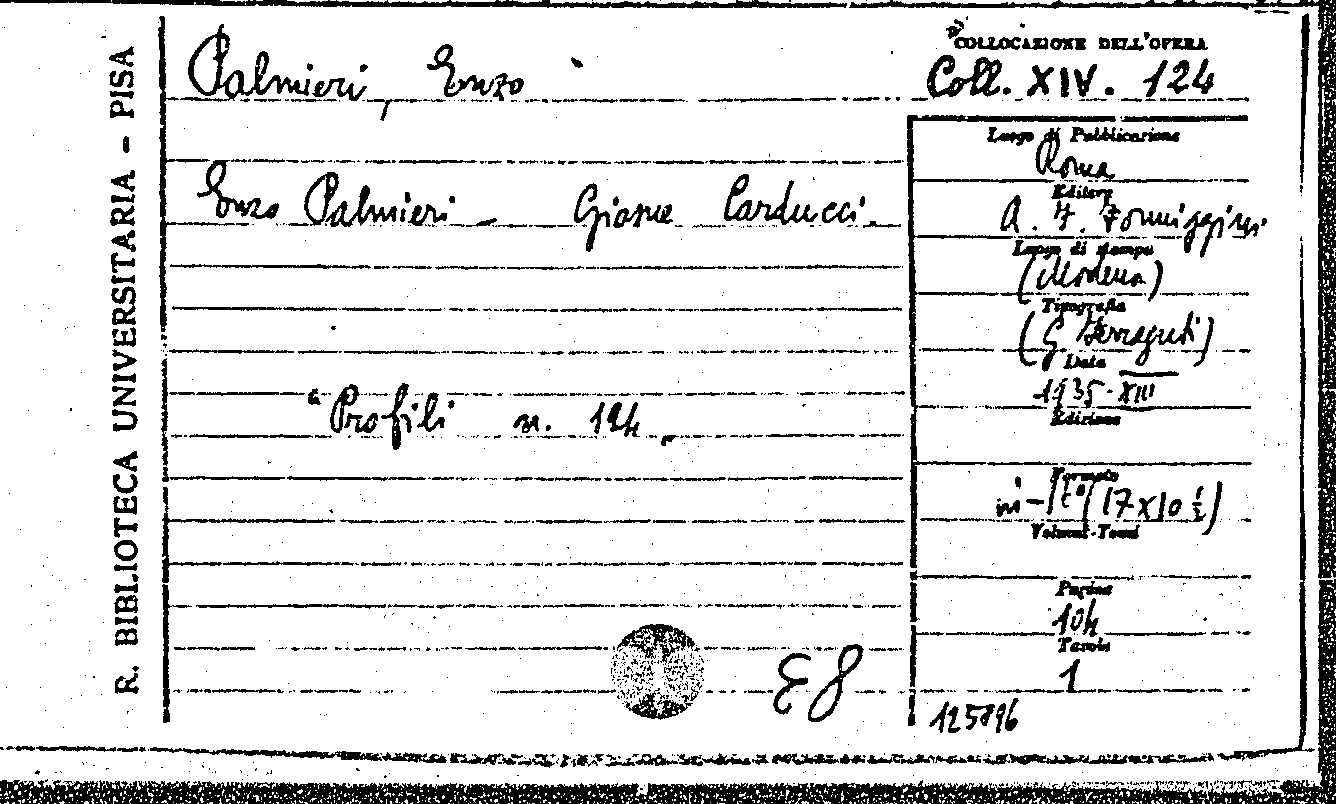 R. BIBLIOTECA UNIVERSITARIA - PISA
Palmieri, Enzo
Enzo Palmieri - Giosue Carducci.
"Profili n. 124 "
E8
COLLOCAZIONE DELL'OPERA
Coll. XIV. 124
Luogo di Pubblicazione
Roma
Editore
A. F. Formiggini
Luogo di stampa
(Modena)
Tipografia
(G Ferraguti)
Data
1935-XIII
Edizione
Formato
in-16°(17x10½)
Volumi-Tomi
Pagine
104
Tavole
1
125896